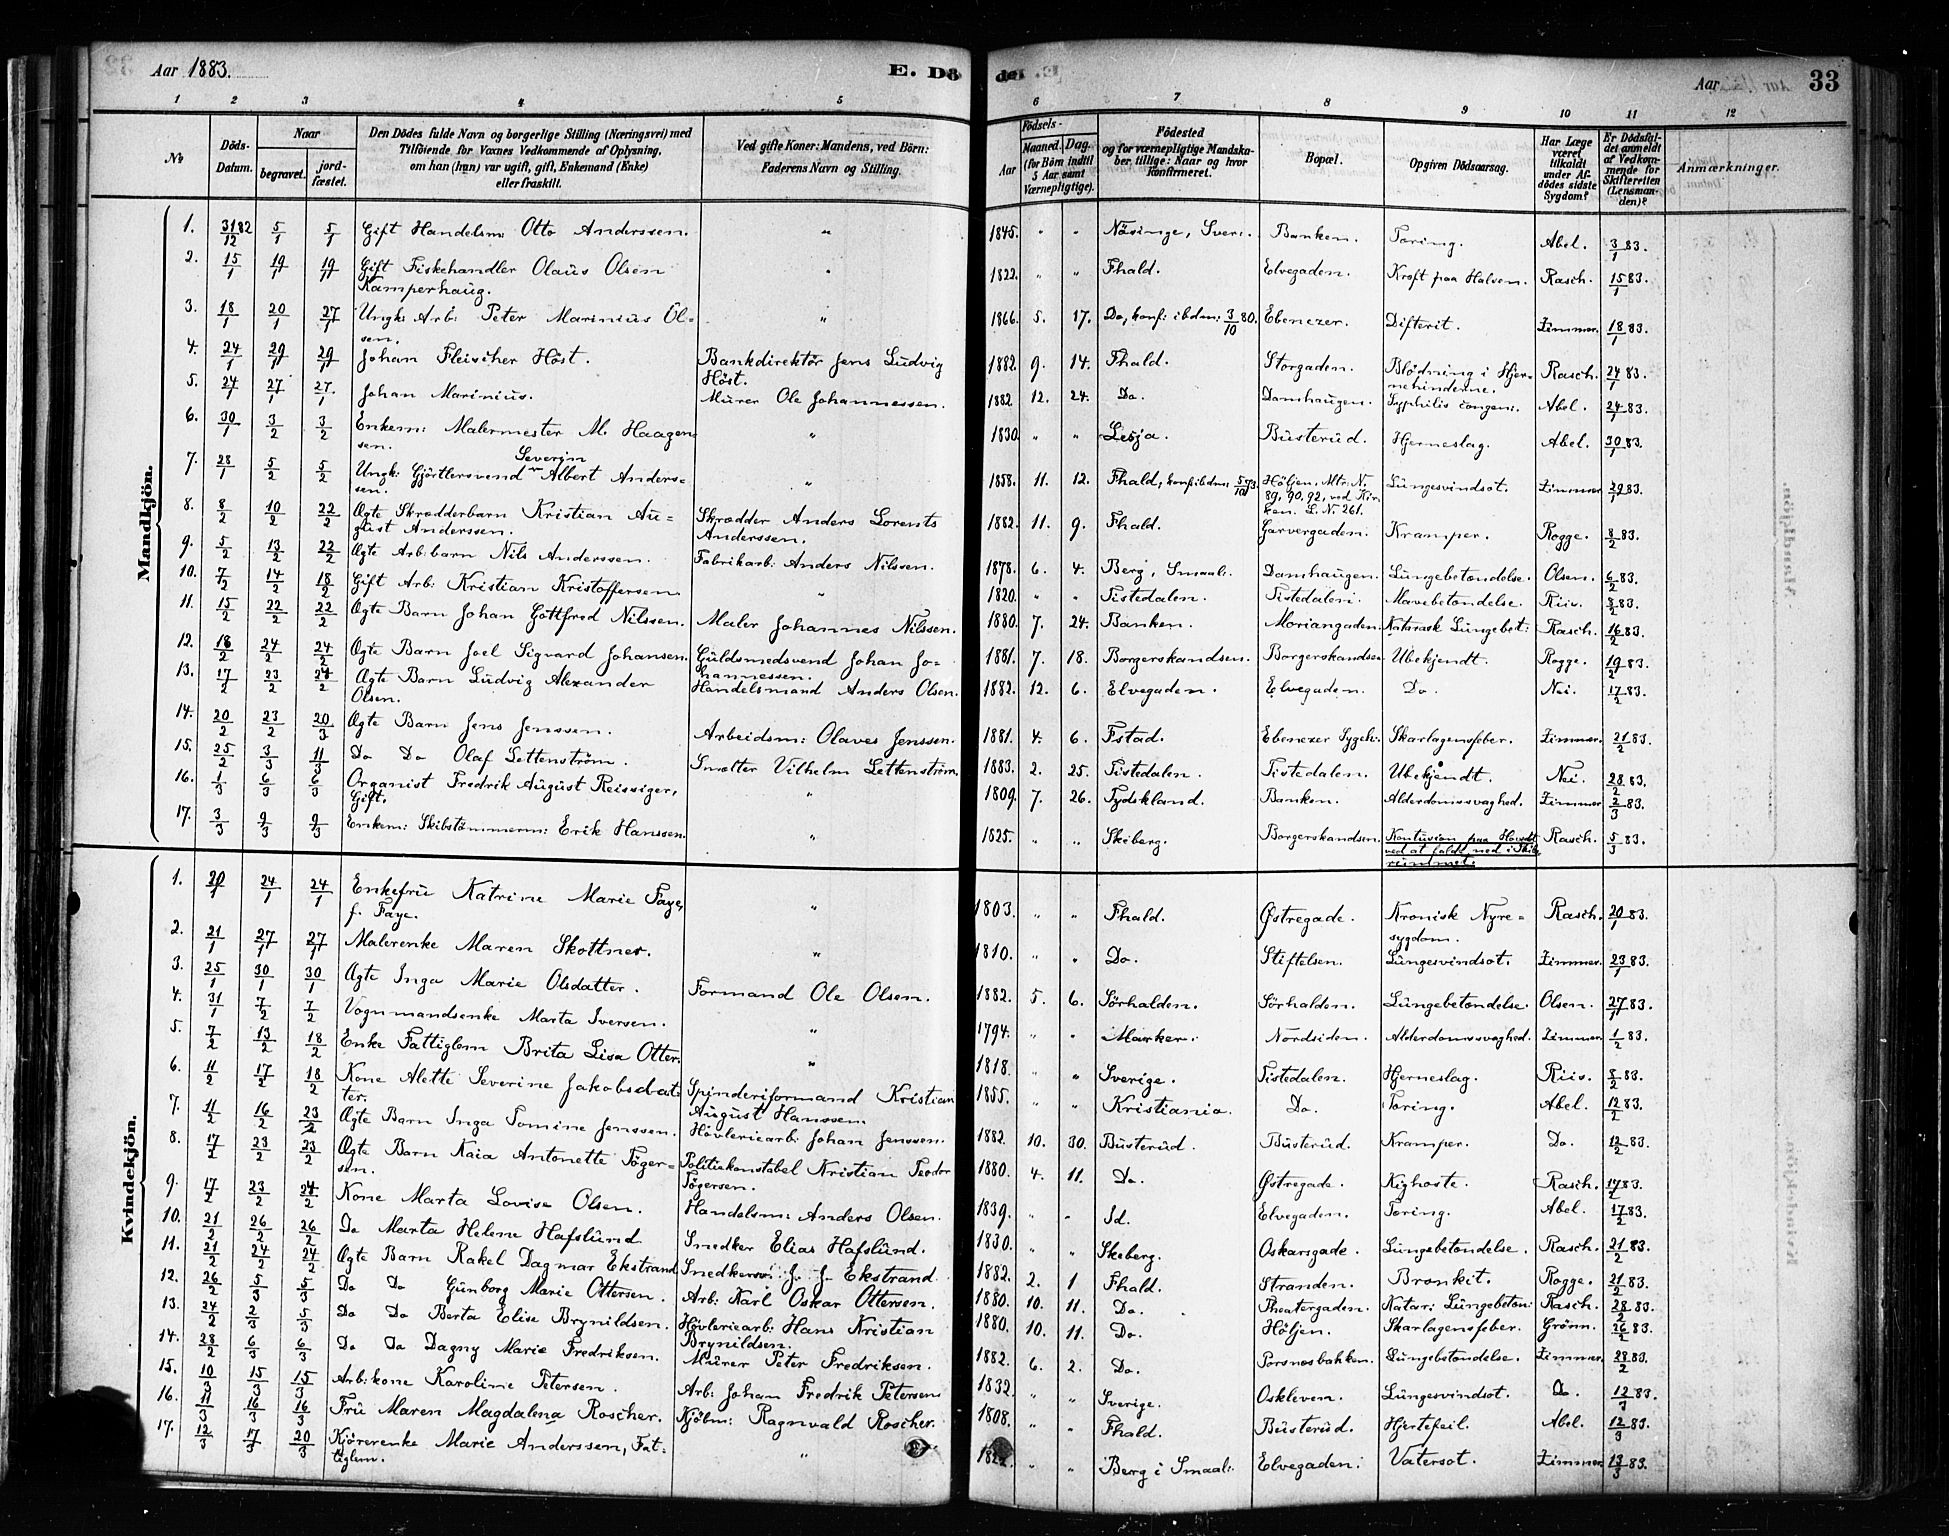 Aar 1883. E. Dö de. Aar 33
1 2 3 4 5 6 7 8 9 10 11 12
No Döds-Datum. Naar begravet. jord-fæstet. Den Dödes fulde Navn og borgerlige Stilling (Næringsvei) med Tilföiende for Voxnes Vedkommende af Oplysning, om han (hun) var ugift, gift, Enkemand (Enke) eller fraskilt. Ved gifte Koner: Mandens, ved Börn: Faderens Navn og Stilling. Födsels- Aar Maaned. Dag. (for Börn indtil 5 Aar samt Værnepligtige). Födested og for værnepligtige Mandska-ber tillige: Naar og hvor konfirmeret. Bopæl. Opgiven Dödsaarsag. Har Læge været tilkaldt under Af-dödes sidste Sygdom? Er Dödsfal-det anmeldt af Vedkom-mende for Skifteretten (Lensman-den)? Anmærkninger.
Mandkjön.
1. 31 82/12 5/1 5/1 Gift Handelsm: Otto Anderssen. " 1845. " " Näsinge, Sver:. Banken. Tæring. Abel. 3/1 83.
2. 15/1 19/1 19/1 Gift Fiskehandler Olaus Olsen Kamperhaug. " 1822. " " Fhald. Elvegaden. Kræft paa Halsen. Rasch. 15/1 83.
3. 18/1 20/1 27/1 Ungk: Arb: Peter Marinius Ol=sen. " 1866. 5. 17. Do, konf: ibdm: 3/10 80. Ebenezer. Difterit. Zimmer. 18/1 83.
4. 24/1 29/1 29/1 Johan Fleischer Höst. Bankdirektör Jens Ludvig Höst. 1882. 9. 14. Fhald. Storgaden. Blödning i Hjer=nehinderne. Rasch. 24/1 83.
5. 24/1 27/1 27/1 Johan Marinius. Murer Ole Johannessen. 1882. 12. 24. Do. Damhaugen. Syphilis congen:. Abel. 24/1 83.
6. 30/1 3/2 3/2 Enkem: Malermester M. Haagen sen. " 1830. " " Lesja. Busterud. Hjerneslag. Abel. 30/1 83.
7. 28/1 5/2 5/2 Ungk: Gjörtlersvend Severin Albert Anders=sen. " 1858. 11. 12. Fhald, konf: ibdm: 5/10 73. Höljen, Mtr: N. 89, 90, 92, ved Kir=ken. L. N. 261. Lungesvindsot. Zimmer. 29/1 83.
8. 8/2 10/2 22/2 Ægte Skrædderbarn Kristian Au=gust Anderssen. Skrædder Anders Lorents Anderssen. 1882. 11. 9. Fhald. Garvergaden. Kramper. Rogge. 8/2 83.
9. 5/2 13/2 22/2 Ægte Arb: barn Nils Anderssen. Fabrikarb: Anders Nilssen. 1878. 6. 4. Berg, Smaal:. Damhaugen. Lungebetændelse. Olsen. 6/2 83.
10. 7/2 14/2 18/2 Gift Arb: Kristian Kristoffersen. " 1820. " " Tistedalen. Tistedalen. Mavebetændelse. Riis. 8/2 83.
11. 15/2 22/2 22/2 Ægte Barn Johan Gottfred Nilssen. Maler Johannes Nilssen. 1880. 7. 24. Banken. Moriangaden. Katarask Lungebet:. Rasch. 16/2 83.
12. 18/2 24/2 24/2 Ægte Barn Joel Sigvard Johansen. Guldsmedsvend Johan Jo=hannessen. 1881. 7. 18. Borgerskandsen. Borgerskandsen. Ubekjendt. Rogge. 19/2 83.
13. 17/2 23/2 24/2 Ægte Barn Ludvig Alexander Olsen. Handelsmand Anders Olsen. 1882. 12. 6. Elvegaden. Elvegaden. Do. Nei. 17/2 83.
14. 20/2 23/2 20/3 Ægte Barn Jens Jenssen. Arbeidsm: Olaves Jenssen. 1881. 4. 6. Fstad. Ebenezer Sygeh:. Skarlagensfeber. Zimmer. 21/2 83.
15. 25/2 3/3 11/3 Do Do Olaf Lettenström. Smætter Vilhelm Lettenström. 1883. 2. 25. Tistedalen. Tistedalen. Ubekjendt. Nei. 28/2 83.
16. 1/3 6/3 6/3 Organist Fredrik August Reissiger, Gift. " 1809. 7. 26. Tydskland. Banken. Alderdomssvaghed. Zimmer. 2/3 83.
17. 3/3 9/3 9/3 Enkem: Skibstömmerm: Erik Hanssen. " 1825. " " Skeberg. Borgerskandsen. Kontusion paa Hovedet ved at falde ned i Skibs rummet. Rasch. 5/3 83.
Kvindekjön.
1. 20/1 24/1 24/1 Enkefru Katrine Marie Faye, f. Faye. " 1803. " " Fhald. Østregade. Kronisk Nyre=sygdom. Rasch. 20/1 83.
2. 21/1 27/1 27/1 Malerenke Maren Skottner. " 1810. " " Do. Stiftelsen. Lungesvindsot. Zimmer. 23/1 83.
3. 25/1 30/1 30/1 Ægte Inga Marie Olsdatter. Formand Ole Olsen. 1882. 5. 6. Sörhalden. Sörhalden. Lungebetændelse. Olsen. 27/1 83.
4. 31/1 7/2 7/2 Vognmandsenke Marta Iversen. " 1794. " " Marker. Nordsiden. Alderdomssvaghed. Zimmer. 1/2 83.
5. 7/2 13/2 18/2 Enke Fattiglem Brita Lisa Otter. " 1818. " " Sverige. Tistedalen. Hjerneslag. Riis. 8/2 83.
6. 11/2 17/2 18/2 Kone Alette Severine Jakobsdat=ter. Spinderiformand Kristian August Hanssen. 1855. " " Kristiania. Do. Tæring. Abel. 12/2 83.
7. 11/2 16/2 23/2 Ægte Barn Inga Tomine Jenssen. Hövleriearb: Johan Jenssen. 1882. 10. 30. Busterud. Busterud. Kramper. Do. 12/2 83.
8. 17/2 23/2 23/2 Ægte Barn Kaia Antonette Töger=sen. Politiekonstabel Kristian Teodor Tögersen. 1880. 4. 11. Do. Østregade. Kighoste. Rasch. 17/2 83.
9. 17/2 23/2 24/2 Kone Marta Lovise Olsen. Handelsm: Anders Olsen. 1839. " " Id. Elvegaden. Tæring. Abel. 17/2 83.
10. 21/2 26/2 26/2 Do Marta Helene Hafslund. Snedker Elias Hafslund. 1830. " " Skeberg. Oskarsgade. Lungebetændelse. Rasch. 21/2 83.
11. 21/2 24/2 24/2 Ægte Barn Rakel Dagmar Ekstrand. Snedkersv: J. J. Ekstrand. 1882. 2. 1 Fhald. Stranden. Bronkit. Rogge. 21/2 83.
12. 26/2 5/3 5/3 Do Do Gunborg Marie Ottersen. Arb: Karl Oskar Ottersen. 1880. 10. 11. Do. Theatergaden. Katar: Lungebetæn: Rasch. 28/2 83.
13. 24/2 2/3 5/3 Do Do Berta Elise Brynildsen. Hövleriearb: Hans Kristian Brynildsen. 1880. 10. 11. Do. Höljen. Skarlagensfeber. Grönn. 26/2 83.
14. 28/2 6/3 6/3 Do Do Dagny Marie Fredriksen. Murer Peter Fredriksen. 1882. 6. 2. Do. Porsnesbakken. Lungebetændelse. Zimmer. 28/2 83.
15. 10/3 15/3 15/3 Arb: kone Karoline Petersen. Arb: Johan Fredrik Petersen. 1832. " " Sverige. Oskleven. Lungesvindsot. Do. 12/3 83.
16. 11/3 16/3 16/3 Fru Maren Magdalena Roscher. Kjöbm: Ragnvald Roscher. 1808. " " Fhald. Busterud. Hjertefeil. Abel. 12/3 83.
17. 12/3 17/3 20/3 Kjörerenke Marie Anderssen, Fat=tiglem. " " " Berg i Smaal: Elvegaden: Vatersot. Zimmer. 13/3 83.